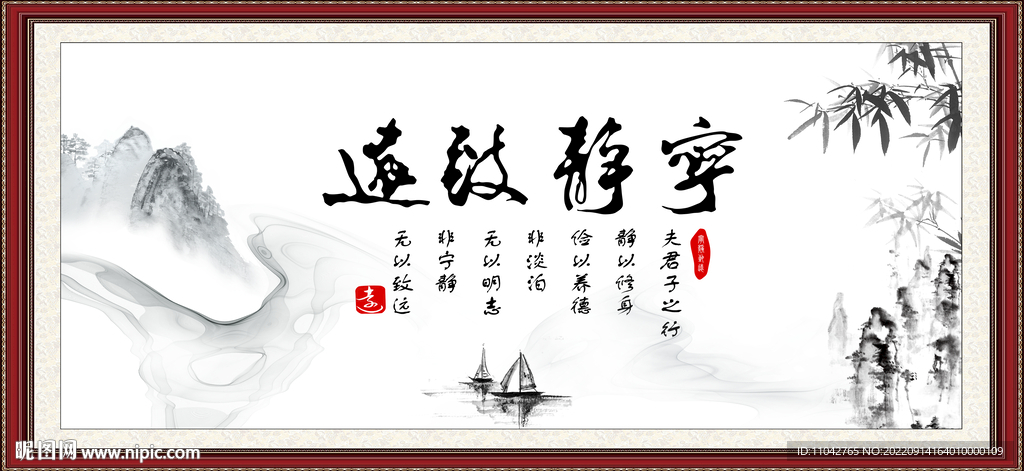 寧静致遠
夫君子之行
静以修身
俭以养德
非淡泊
无以明志
非宁静
无以致远
昵图网 www.nipic.com
ID:11042765 NO:20220914164010000109